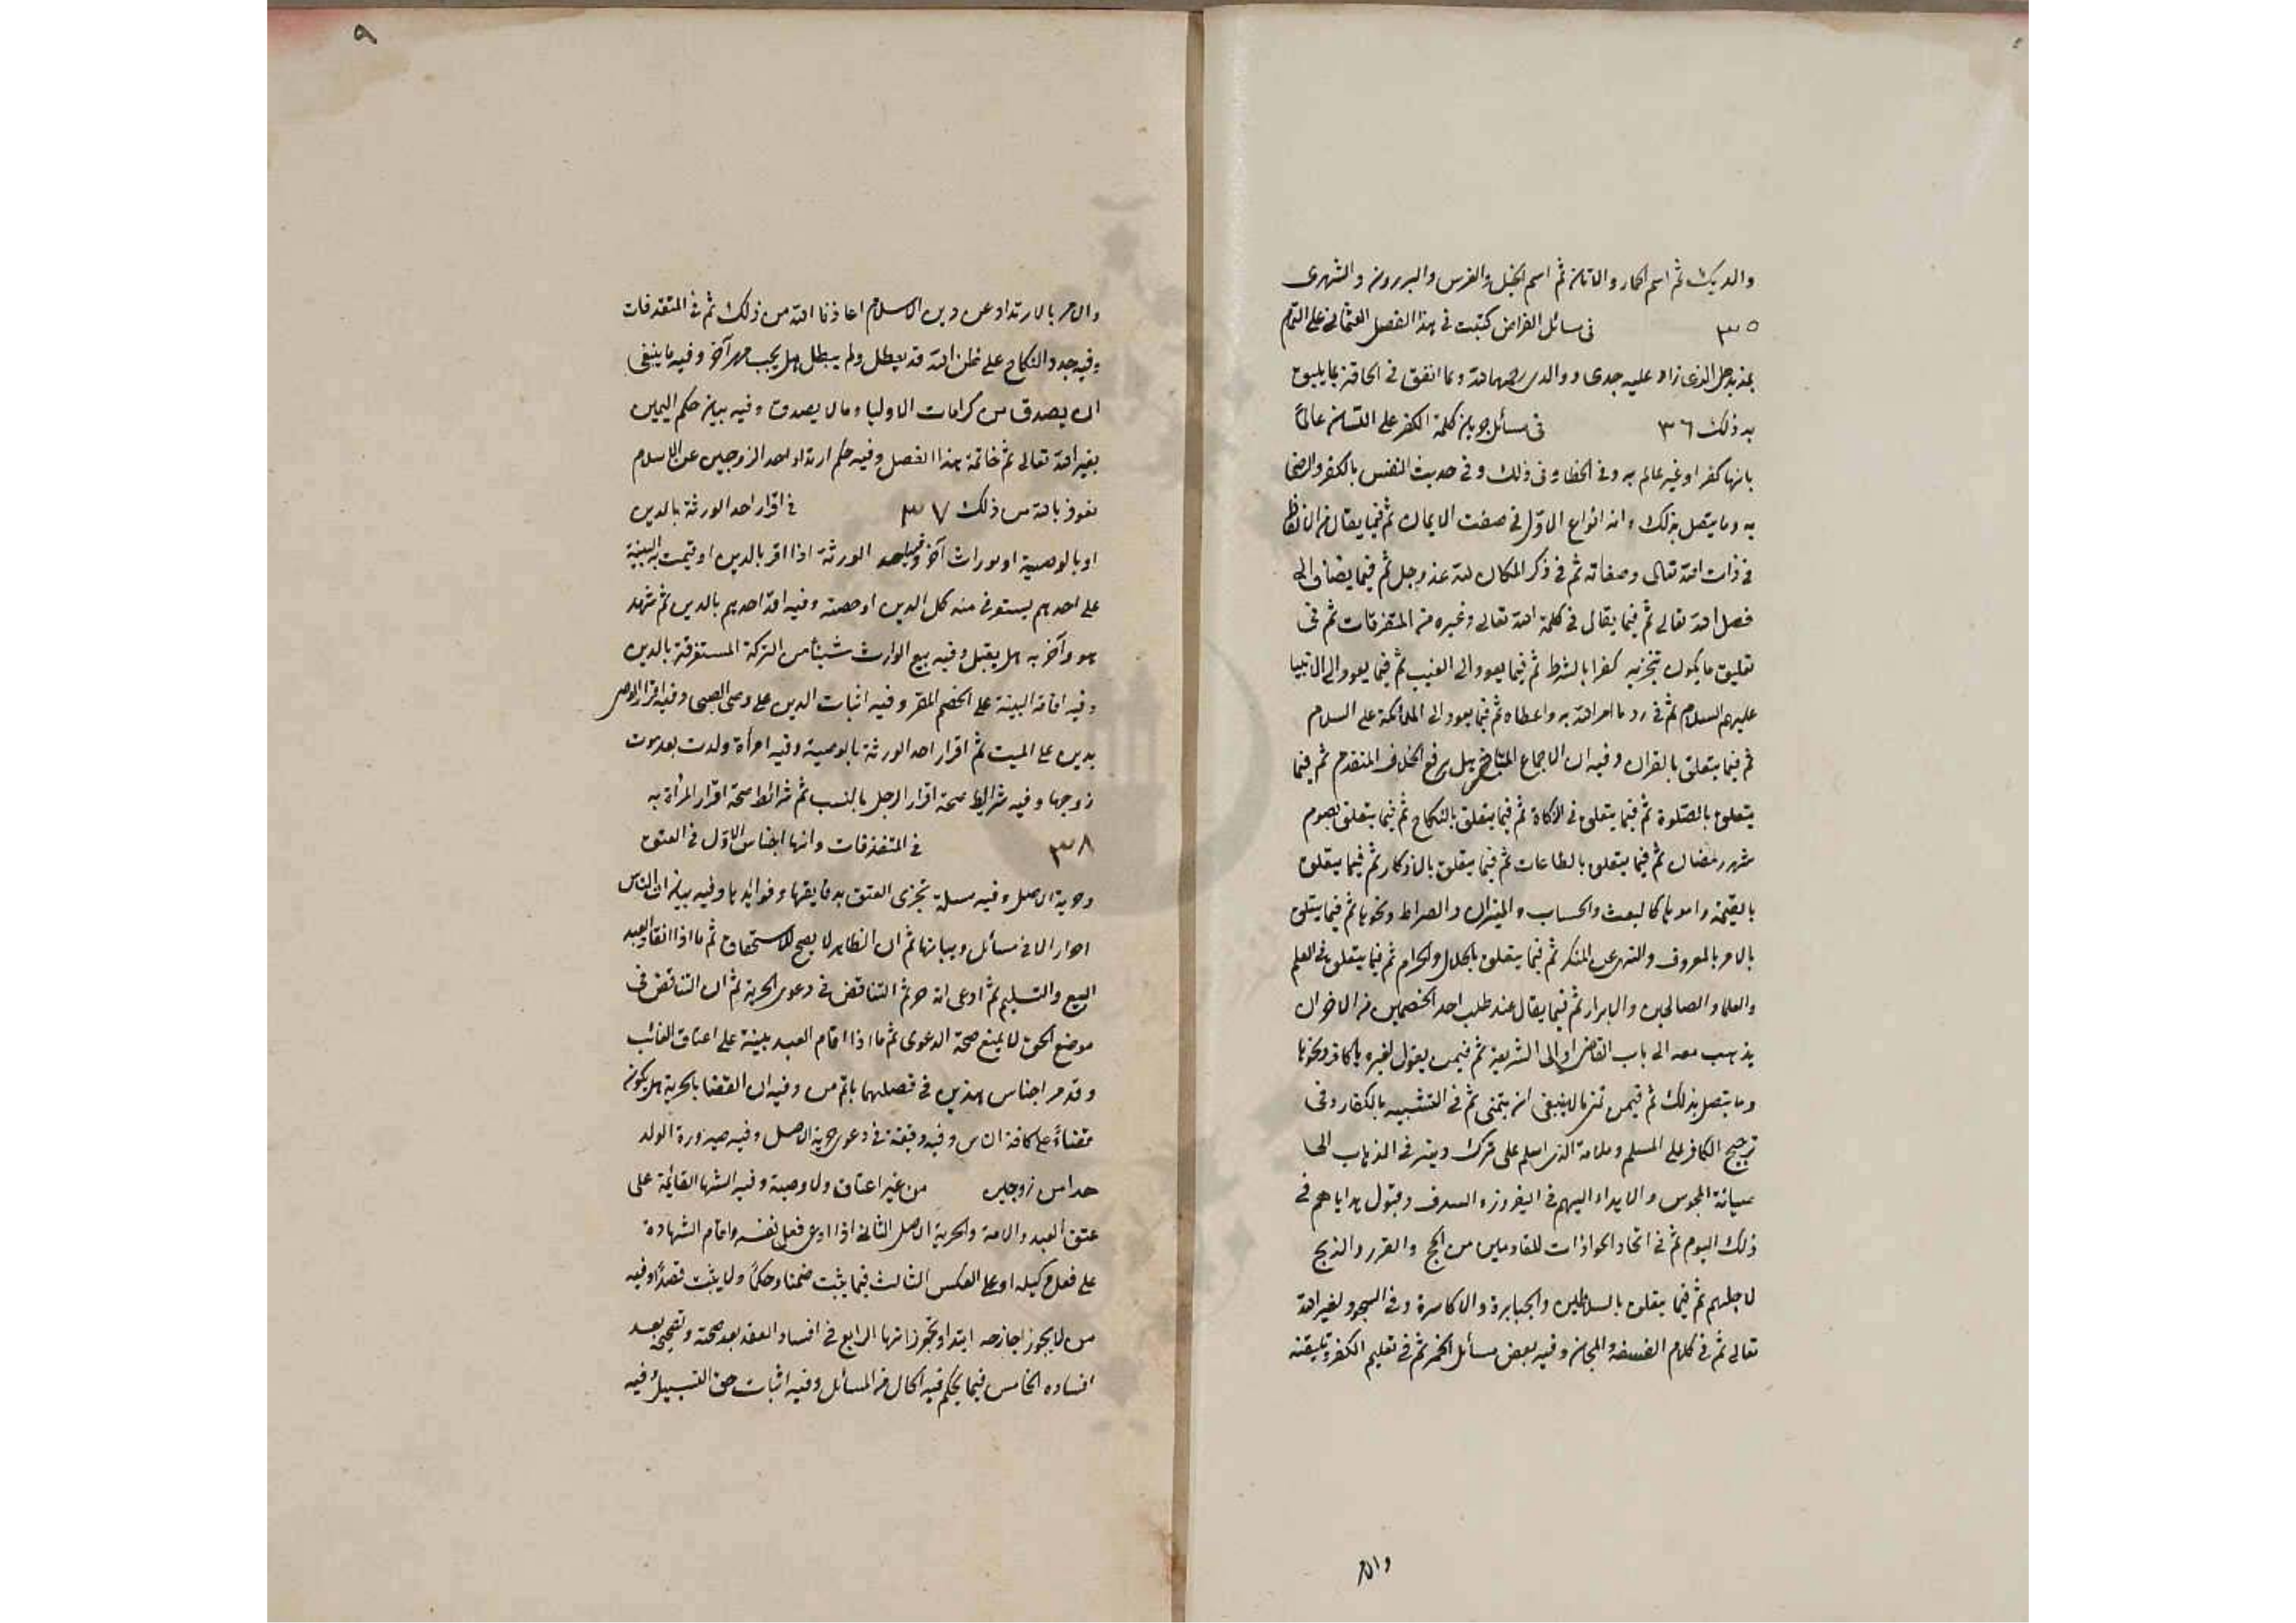 والديك ثم اسم الحمار والاتان ثم اسم الخيل والفرس والبرذون والشهرى
٣٥ فى مسائل الفرائض كتبت فى هذا الفصل العثمانى على التمام
الذى زاد عليه جدى ووالدى رحمهما الله وما اتفق فى الحاقه بما يليق
به ذلك ٣٦ فى مسائل جريان كلمة الكفر على اللسان عالماً
بانها كفر او غير عالم به وفى الخطا فى ذلك وفى حديث النفس بالكفر والرضى
به وما يتصل بذلك وانه انواع الاول فى صفت الايمان ثم فيما يقال من الالفاظ
فى ذات الله تعالى وصفاته ثم فى ذكر المكان لله عز وجل ثم فيما يضاف الى
فصل الله تعالى ثم فيما يقال فى كلمة الله تعالى وغيره من المتفرقات ثم فى
تعليق ما يكون تنجيزه كفرا بالشرط ثم فيما يعود الى الغيب ثم فيما يعود الى الانبيا
عليهم السلام ثم فى رد ما امر الله به واعطاه ثم فيما يعود الى الملائكة على السلام
ثم فيما يتعلق بالقران وفيه ان الاجماع المتاخر هل يرفع الخلاف المتقدم ثم فيما
يتعلق بالصلوة ثم فيما يتعلق فى الزكاة ثم فيما يتعلق بالنكاح ثم فيما يتعلق بصوم
شهر رمضان ثم فيما يتعلق بالطاعات ثم فيما يتعلق بالاذكار ثم فيما يتعلق
بالقيمة وامورها كالبعث والحساب والميزان والصراط ونحوها ثم فيما يتعلق
بالامر بالمعروف والنهى عن المنكر ثم فيما يتعلق بالحلال والحرام ثم فيما يتعلق فى العلم
والعلما والصالحين والابرار ثم فيما يقال عند طلب احد الخصمين من الاخر ان
يذهب معه الى باب القاضى او الى الشريعة ثم فيمن يقول لغيره يا كافر ونحوها
وما يتصل بذلك ثم فيمن تمنى ما لا ينبغى ان يتمنى ثم فى التشبيه بالكفار وفى
ترجيح الكافر على المسلم وملامة الذى اسلم على ترك دينه فى الذهاب الى
المجوس والاهداء اليهم فى النيروز و السدف وقبول هداياهم فى
ذلك اليوم ثم فى اتخاد الجواذات للقادمين من الحج والذبح
لاجلهم ثم فيما يتعلق بالسلاطين والجبابرة والاكاسرة وفى السجود لغير الله
تعالى ثم فى كلام الفسقة والمجان وفيه بعض مسائل الخمر ثم فى تعليم الكفر وتلقينه
والامر
٩
والامر بالارتداد عن دين الاسلام اعاذنا الله من ذلك ثم فى المتفرقات
وفيه جدد النكاح على ظن انه قد بطل ولم يبطل هل يجب مهر آخر وفيه ما ينبغى
ان يصدق من كرامات الاوليا وما لا يصدق وفيه بيان حكم اليمين
بغير الله تعالى ثم خاتمة هذا الفصل وفيه حكم ارتداد احد الزوجين عن الاسلام
نعوذ بالله من ذلك ٣٧ فى اقرار احد الورثة بالدين
او بالوصية او بوراث آخر الورثة اذا اقر بالدين او قيمت به البينة
على احدهم يستوفى منه كل الدين او حصته وفيه اقر احدهم بالدين ثم شهد
هو وآخر به هل يقبل وفيه بيع الوارث شيئا من التركة المستغرقة بالدين
وفيه اقامة البينة على الخصم المقر وفيه اثبات الدين على وصى الصبى وفيه اقرار الوصى
بدين على الميت ثم اقرار احد الورثة بالوصية وفيه امرأة ولدت بعد موت
زوجها وفيه شرائط صحة اقرار الرجل بالنسب ثم شرائط صحة اقرار المرأة به
٣٨ فى المتفرقات وانها اجناس الاول فى العتق
وحرية الاصل وفيه مسئلة تجزى العتق بدقايقها وفوائدها وفيه بيان ان الناس
احرار الا فى مسائل وبيانها ثم ان الظاهر لا يصح للاستحقاق ثم ما اذا انقاد العبد
البيع والتسليم ثم ادعى انه حر ثم التناقض فى دعوى الحرية ثم ان التناقض فى
موضع الحق لا يمنع صحة الدعوى ثم ما اذا اقام العبد بينة على اعتاق الغائب
وقد مر اجناس هذين فى فصلهما باتم من وفيه ان القضا بالحرية هل يكون
قضاءً على كافة الناس وفيه دقيقة فى دعوى حرية الاصل وفيه صيرورة الولد
حدا من زوجين من غير اعتاق ولا وصية وفيه الشها القائمة على
عتق العبد والامة والحرية الاصل الثانى اذا ادعى فعل نفسه واقام الشهادة
على فعل وكيله او على العكس الثالث فيما يثبت ضمنا وحكماً ولا يثبت قصدًا وفيه
من لا يجوز اجازته ابتدا وتجوز انتها الرابع فى افساد العقد بعد صحته وتصحيحه بعد
افساده الخامس فيما يحكم فيه الحال من المسائل وفيه اثبات حق التسبيل وفيه